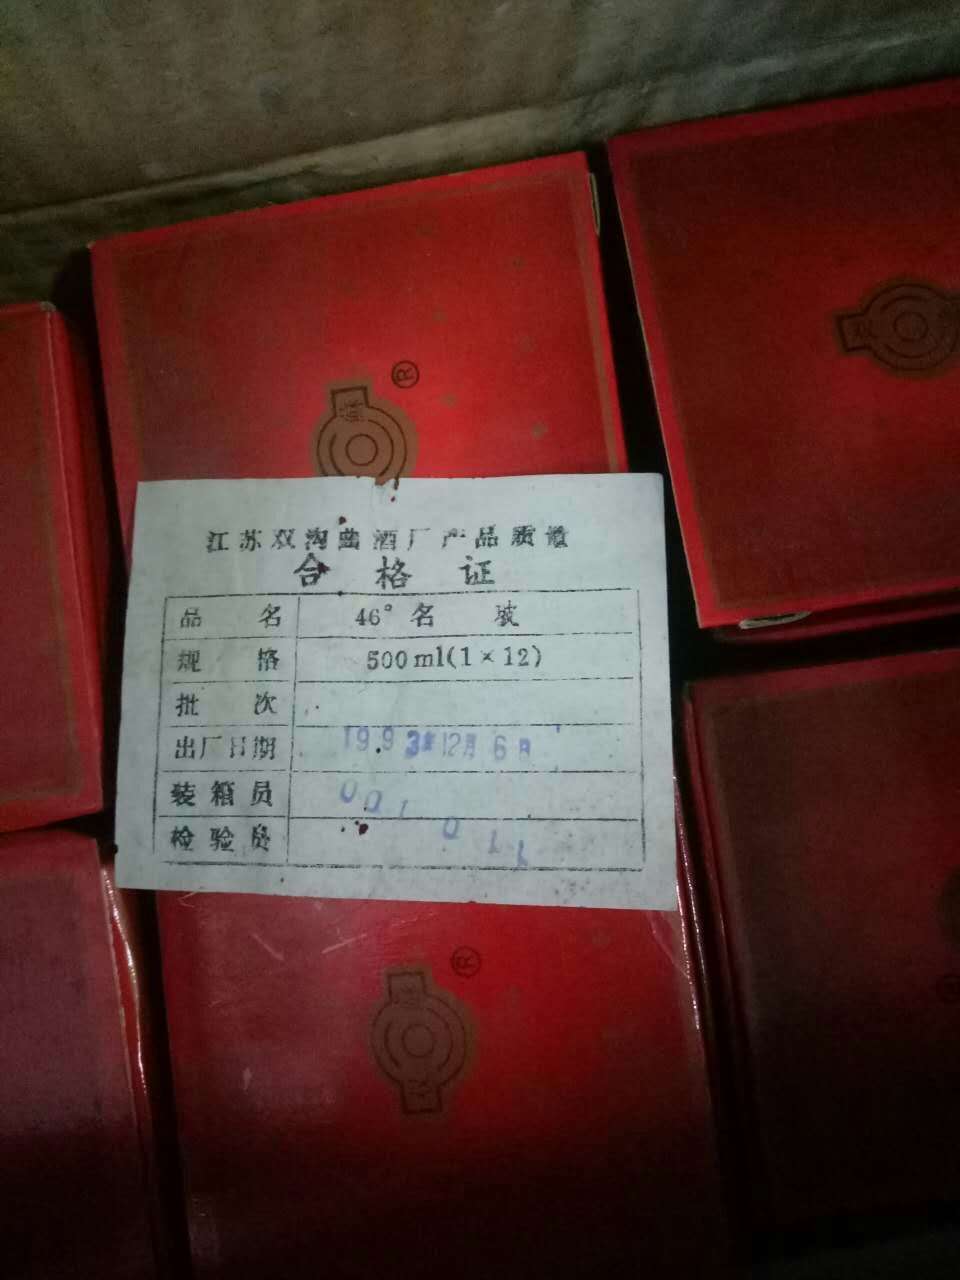 ®
江苏双沟曲酒厂产品质量
合格证
品名 46°名玻
规格 500ml(1×12)
批次
出厂日期 1993年12月6日
装箱员 001
检验员 011
®